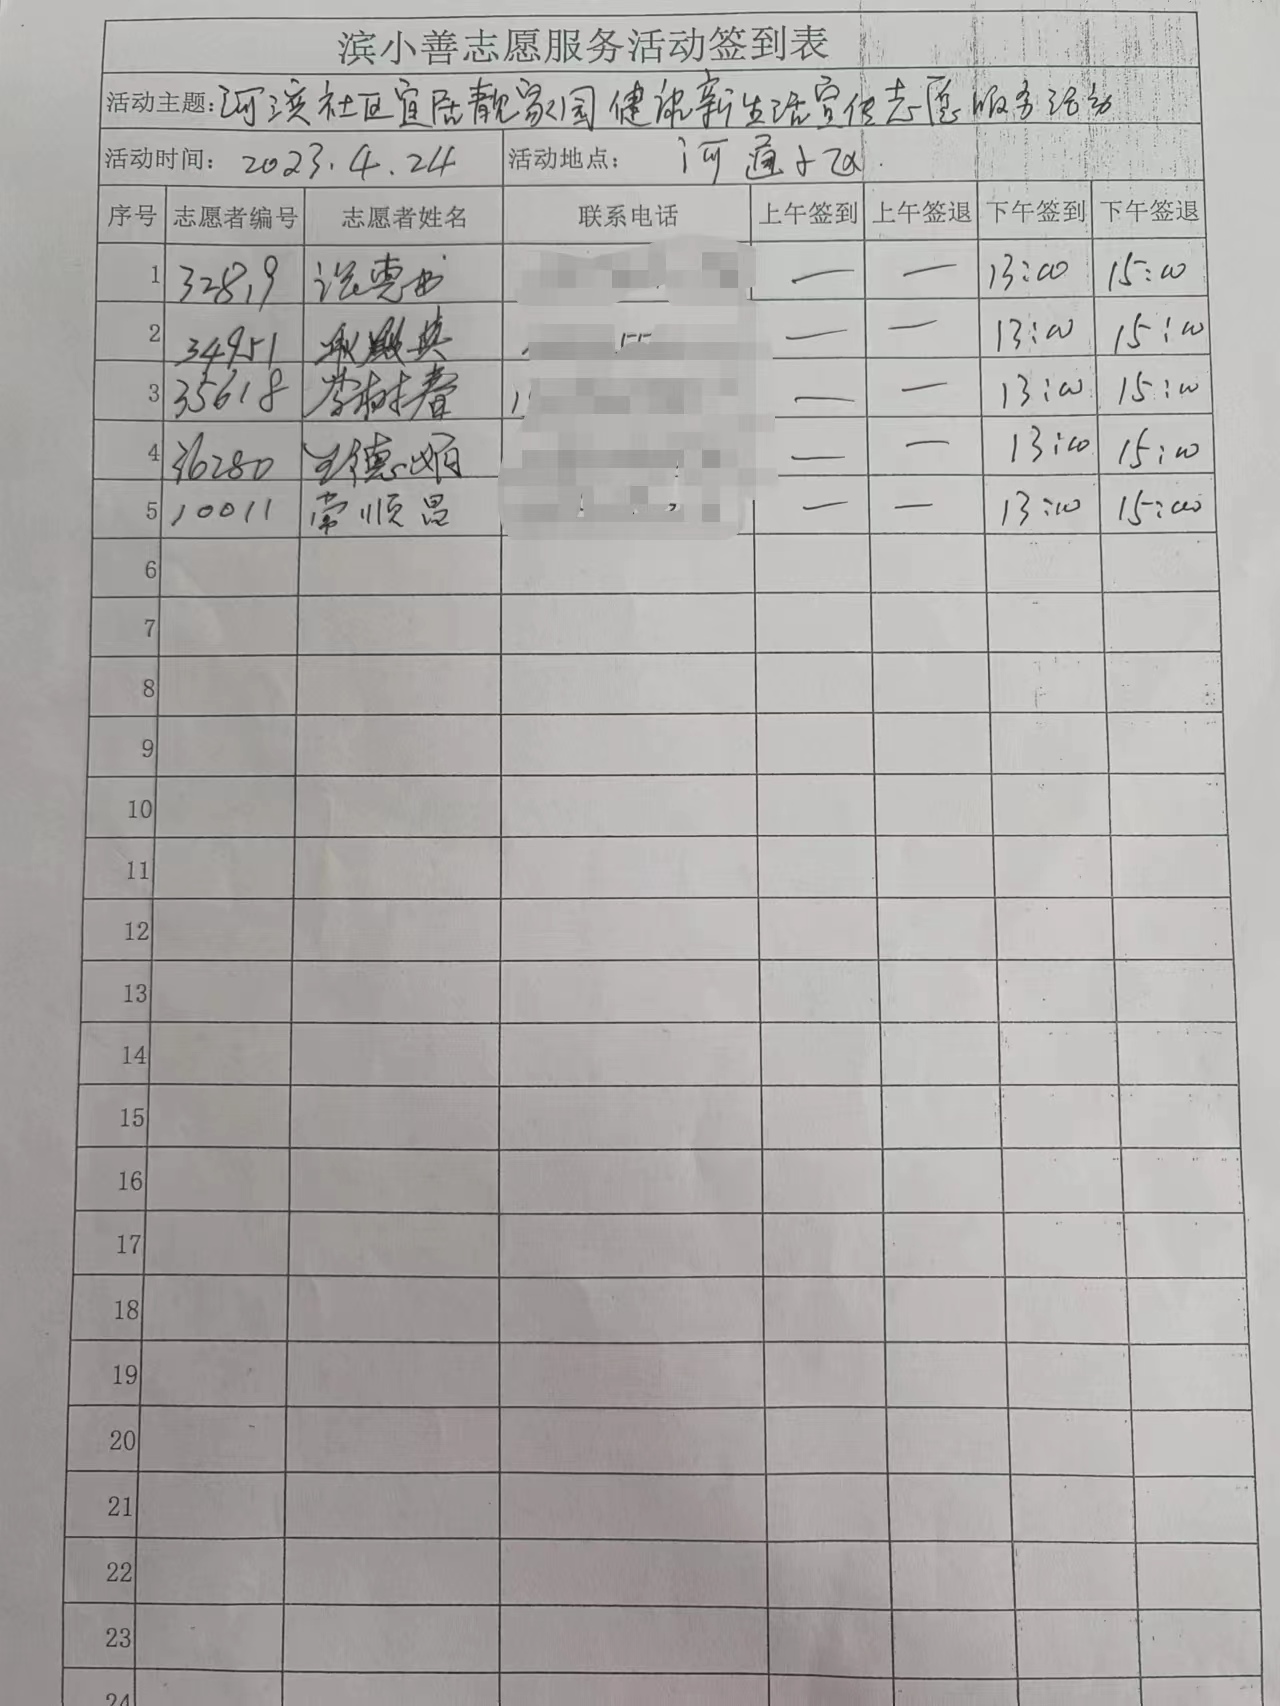 滨小善志愿服务活动签到表
活动主题:河滨社区宜居靓家园 健康新生活宣传志愿服务活动
活动时间: 2023.4.24 活动地点: 河通小区.
序号 志愿者编号 志愿者姓名 联系电话 上午签到 上午签退 下午签到 下午签退
1 32819 惠 — — 13:00 15:00
2 34951 英 — — 13:00 15:00
3 35618 李树春 — — 13:00 15:00
4 36280 王德 — — 13:00 15:00
5 10011 常顺昌 — — 13:00 15:00
6
7
8
9
10
11
12
13
14
15
16
17
18
19
20
21
22
23
24